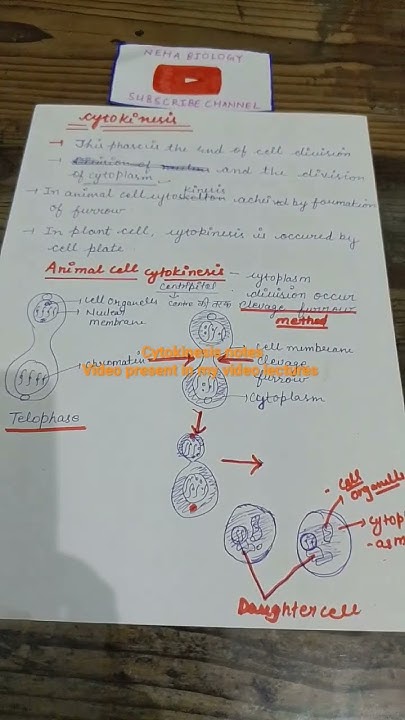 NEHA BIOLOGY
SUBSCRIBE CHANNEL
Cytokinesis
→ This phase is the end of cell division
→ and the division
of cytoplasm.
kinesis
→ In animal cell cyto achived by formation
of furrow
→ In plant cell, cytokinesis is occured by
cell plate.
Animal cell cytokinesis – cytoplasm
Centripital division occur
centre की तरफ cleavage furrow
method
cell organelles
Nuclear
membrane
chromatin
Telophase
Cell membrane
Clevage
furrow
Cytoplasm
Cytokinesis notes
Video present in my video lectures
cell
organelle
cytopl
-asm
Daughter cell